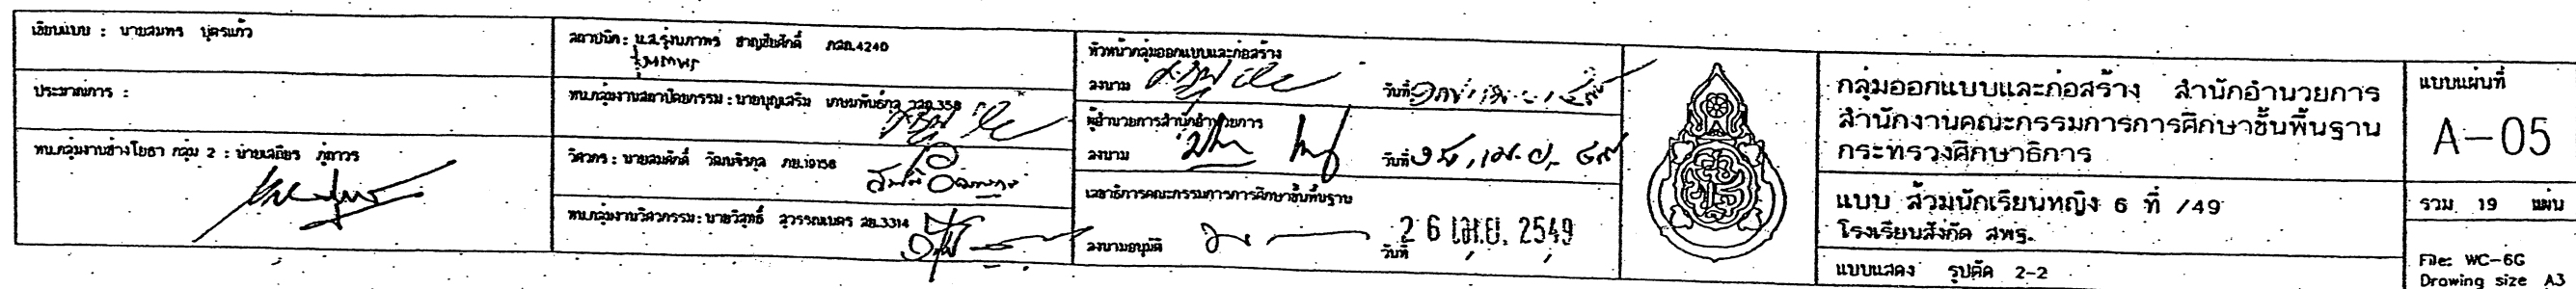 เขียนแบบ : นายสมทร บุตรแก้ว
ประมาณการ :
หน.กลุ่มงานช่างโยธา กลุ่ม 2 : นายเสถียร ภู่ถาวร
สถาปนิก : น.ส.รุ่งนภาพร ชาญชัยศักดิ์ ภสถ.4240
รุ่งนภาพร
หน.กลุ่มงานสถาปัตยกรรม : นายบุญเสริม เกษมพันธ์กุล วสถ.358
วิศวกร : นายสมศักดิ์ วัฒนจิรกุล ภย.19158
หน.กลุ่มงานวิศวกรรม : นายวิสุทธิ์ สุวรรณเนคร สย.3314
หัวหน้ากลุ่มออกแบบและก่อสร้าง
ลงนาม วันที่
ผู้อำนวยการสำนักอำนวยการ
ลงนาม วันที่
เลขาธิการคณะกรรมการการศึกษาขั้นพื้นฐาน
ลงนามอนุมัติ วันที่ 26 เม.ย. 2549
กลุ่มออกแบบและก่อสร้าง สำนักอำนวยการ
สำนักงานคณะกรรมการการศึกษาขั้นพื้นฐาน
กระทรวงศึกษาธิการ
แบบ ส้วมนักเรียนหญิง 6 ที่ /49
โรงเรียนสังกัด สพฐ.
แบบแสดง รูปตัด 2-2
แบบแผ่นที่
A-05
รวม 19 แผ่น
File: WC-6G
Drawing size A3